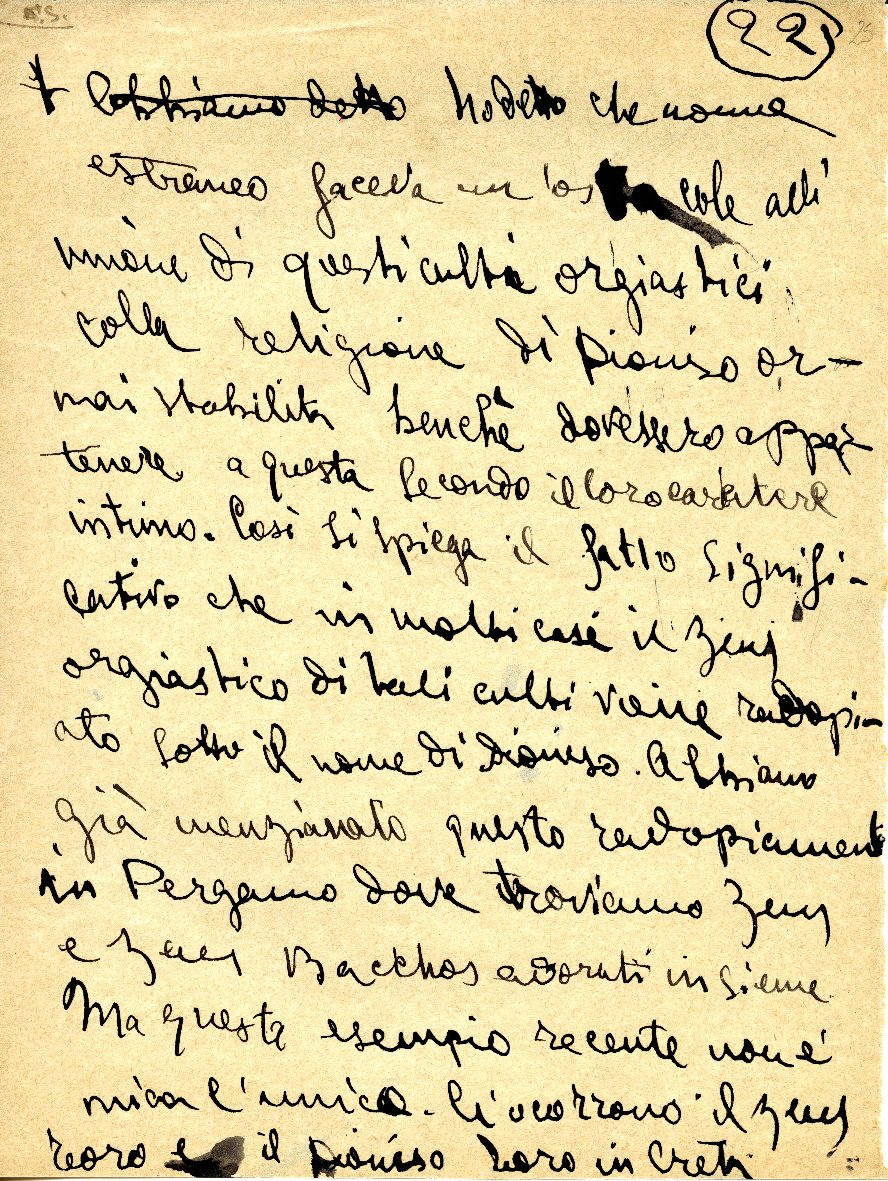 22
Abbiamo detto Ho detto che nome
estraneo faceva un'os cole all'
unione di questi culti orgiastici
colla religione di Dioniso or-
mai stabilita benchè dovessero appar-
tenere a questa secondo il loro caratere
intimo. Così si spiega il fatto signifi-
cativo che in molti casi il Zeus
orgiastico di tali culti viene radopi-
ato sotto il nome di Dioniso. Abbiamo
già menzianato questo radopiament
in Pergamo dove troviamo Zeus
e Zeus Bacchos adorati insieme
Ma questo esempio recente non è
mica l'unico. Ci ocorrono il Zeus
e il Dioniso in Creta